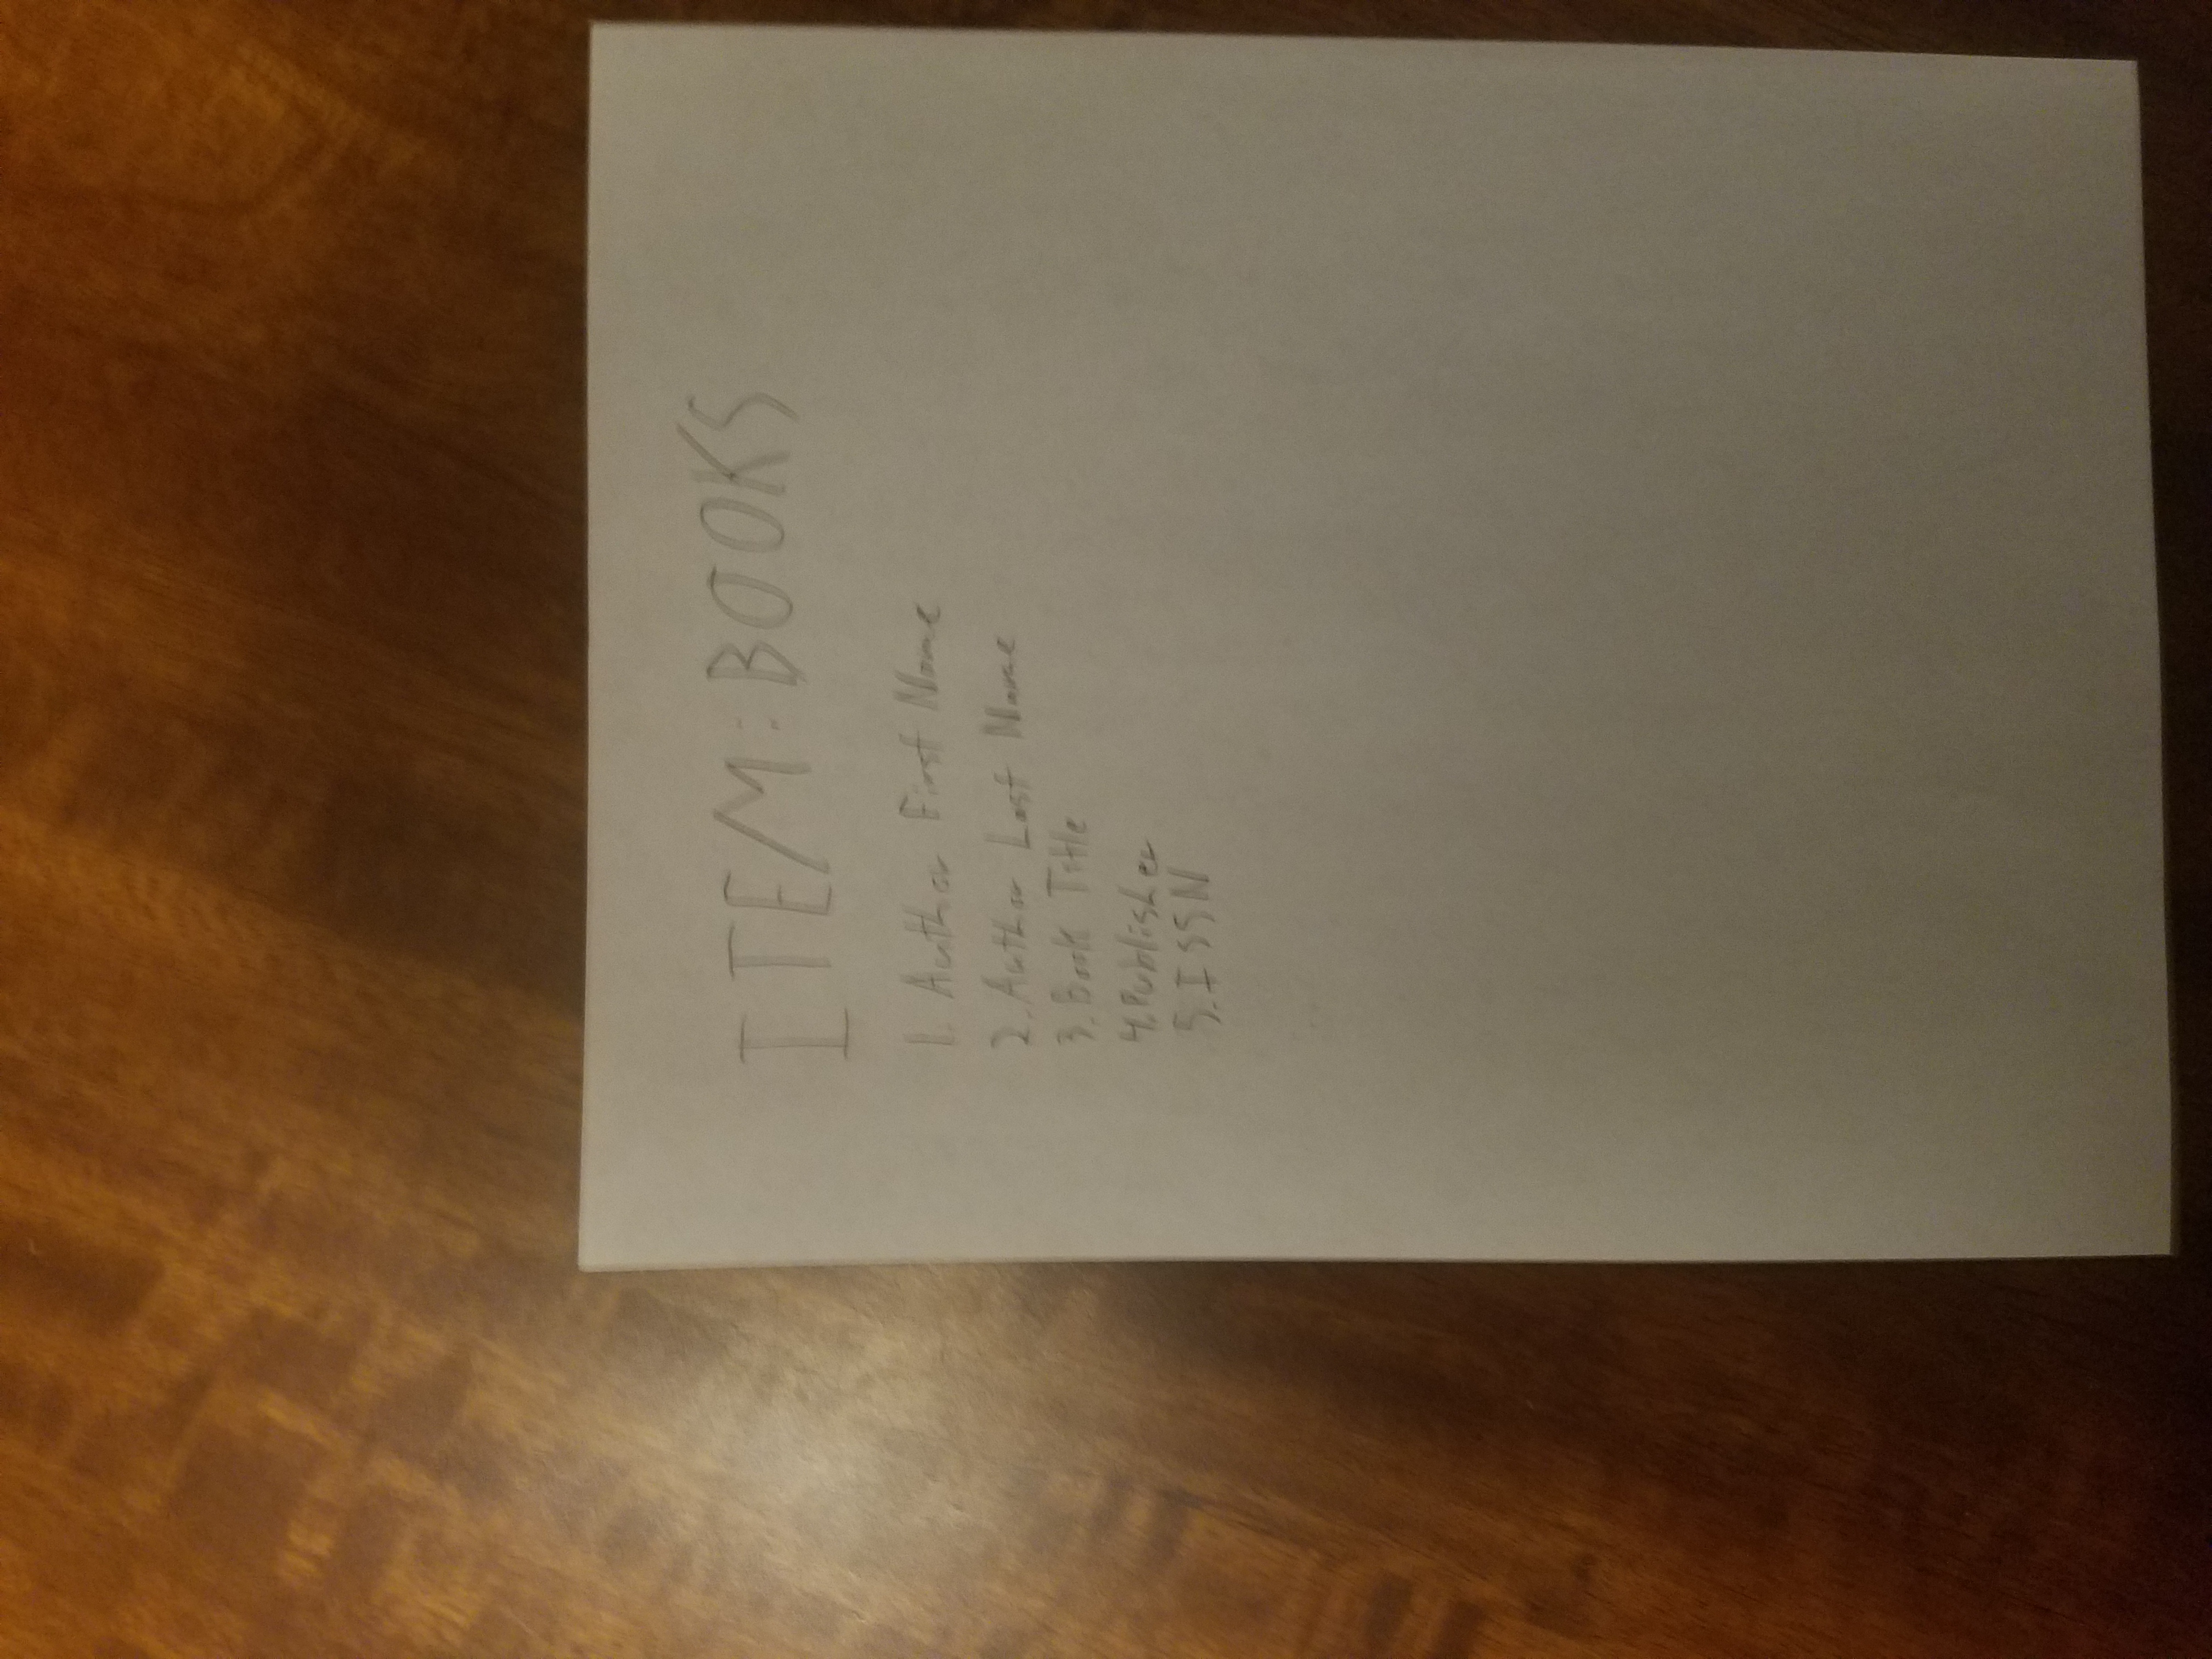 ITEM: BOOKS
1. Author First Name
2. Author Last Name
3. Book Title
4. Publisher
5. ISSN